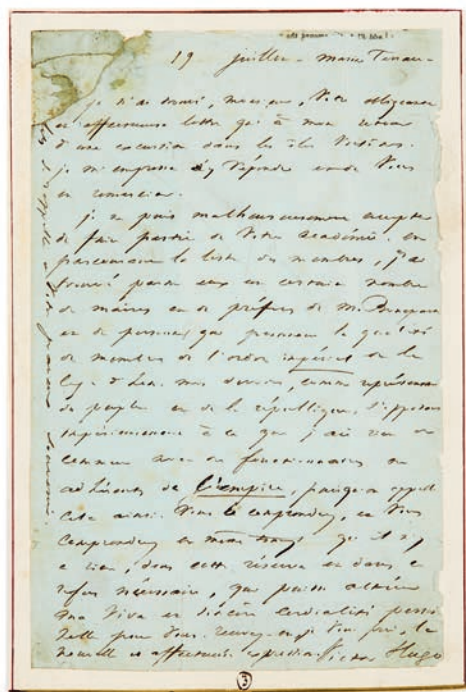 19 juillet - Marine Terrace -
je n'ai trouvé, monsieur, Votre obligeante
et affectueuse lettre qu'à mon retour
d'une excursion dans les îles Voisines.
je m'empresse d'y répondre et de Vous
en remercier.
je ne puis malheureusement accepter
de faire partie de Votre académie. en
parcourant la liste des membres, j'ai
trouvé parmi eux un certain nombre
de maires et de préfets de M. Bonaparte
et de personnes qui prennent la qualité
de membres de l'ordre impérial de la
mes devoirs, comme représentant
du peuple et de la république, s'opposent
impérieusement à ce que j'aie rien de
commun avec des fonctionnaires ou
adhérents de l'empire, puisqu'on appelle
cela ainsi. Vous le comprendrez, et Vous
comprendrez en même temps qu'il n'y
a rien, dans cette réserve et dans ce
refus nécessaire, qui puisse altérer
ma Vive et sincère cordialité person-
nelle pour Vous. recevez-en, je Vous prie, la
nouvelle et affectueuse expression. Victor Hugo
3